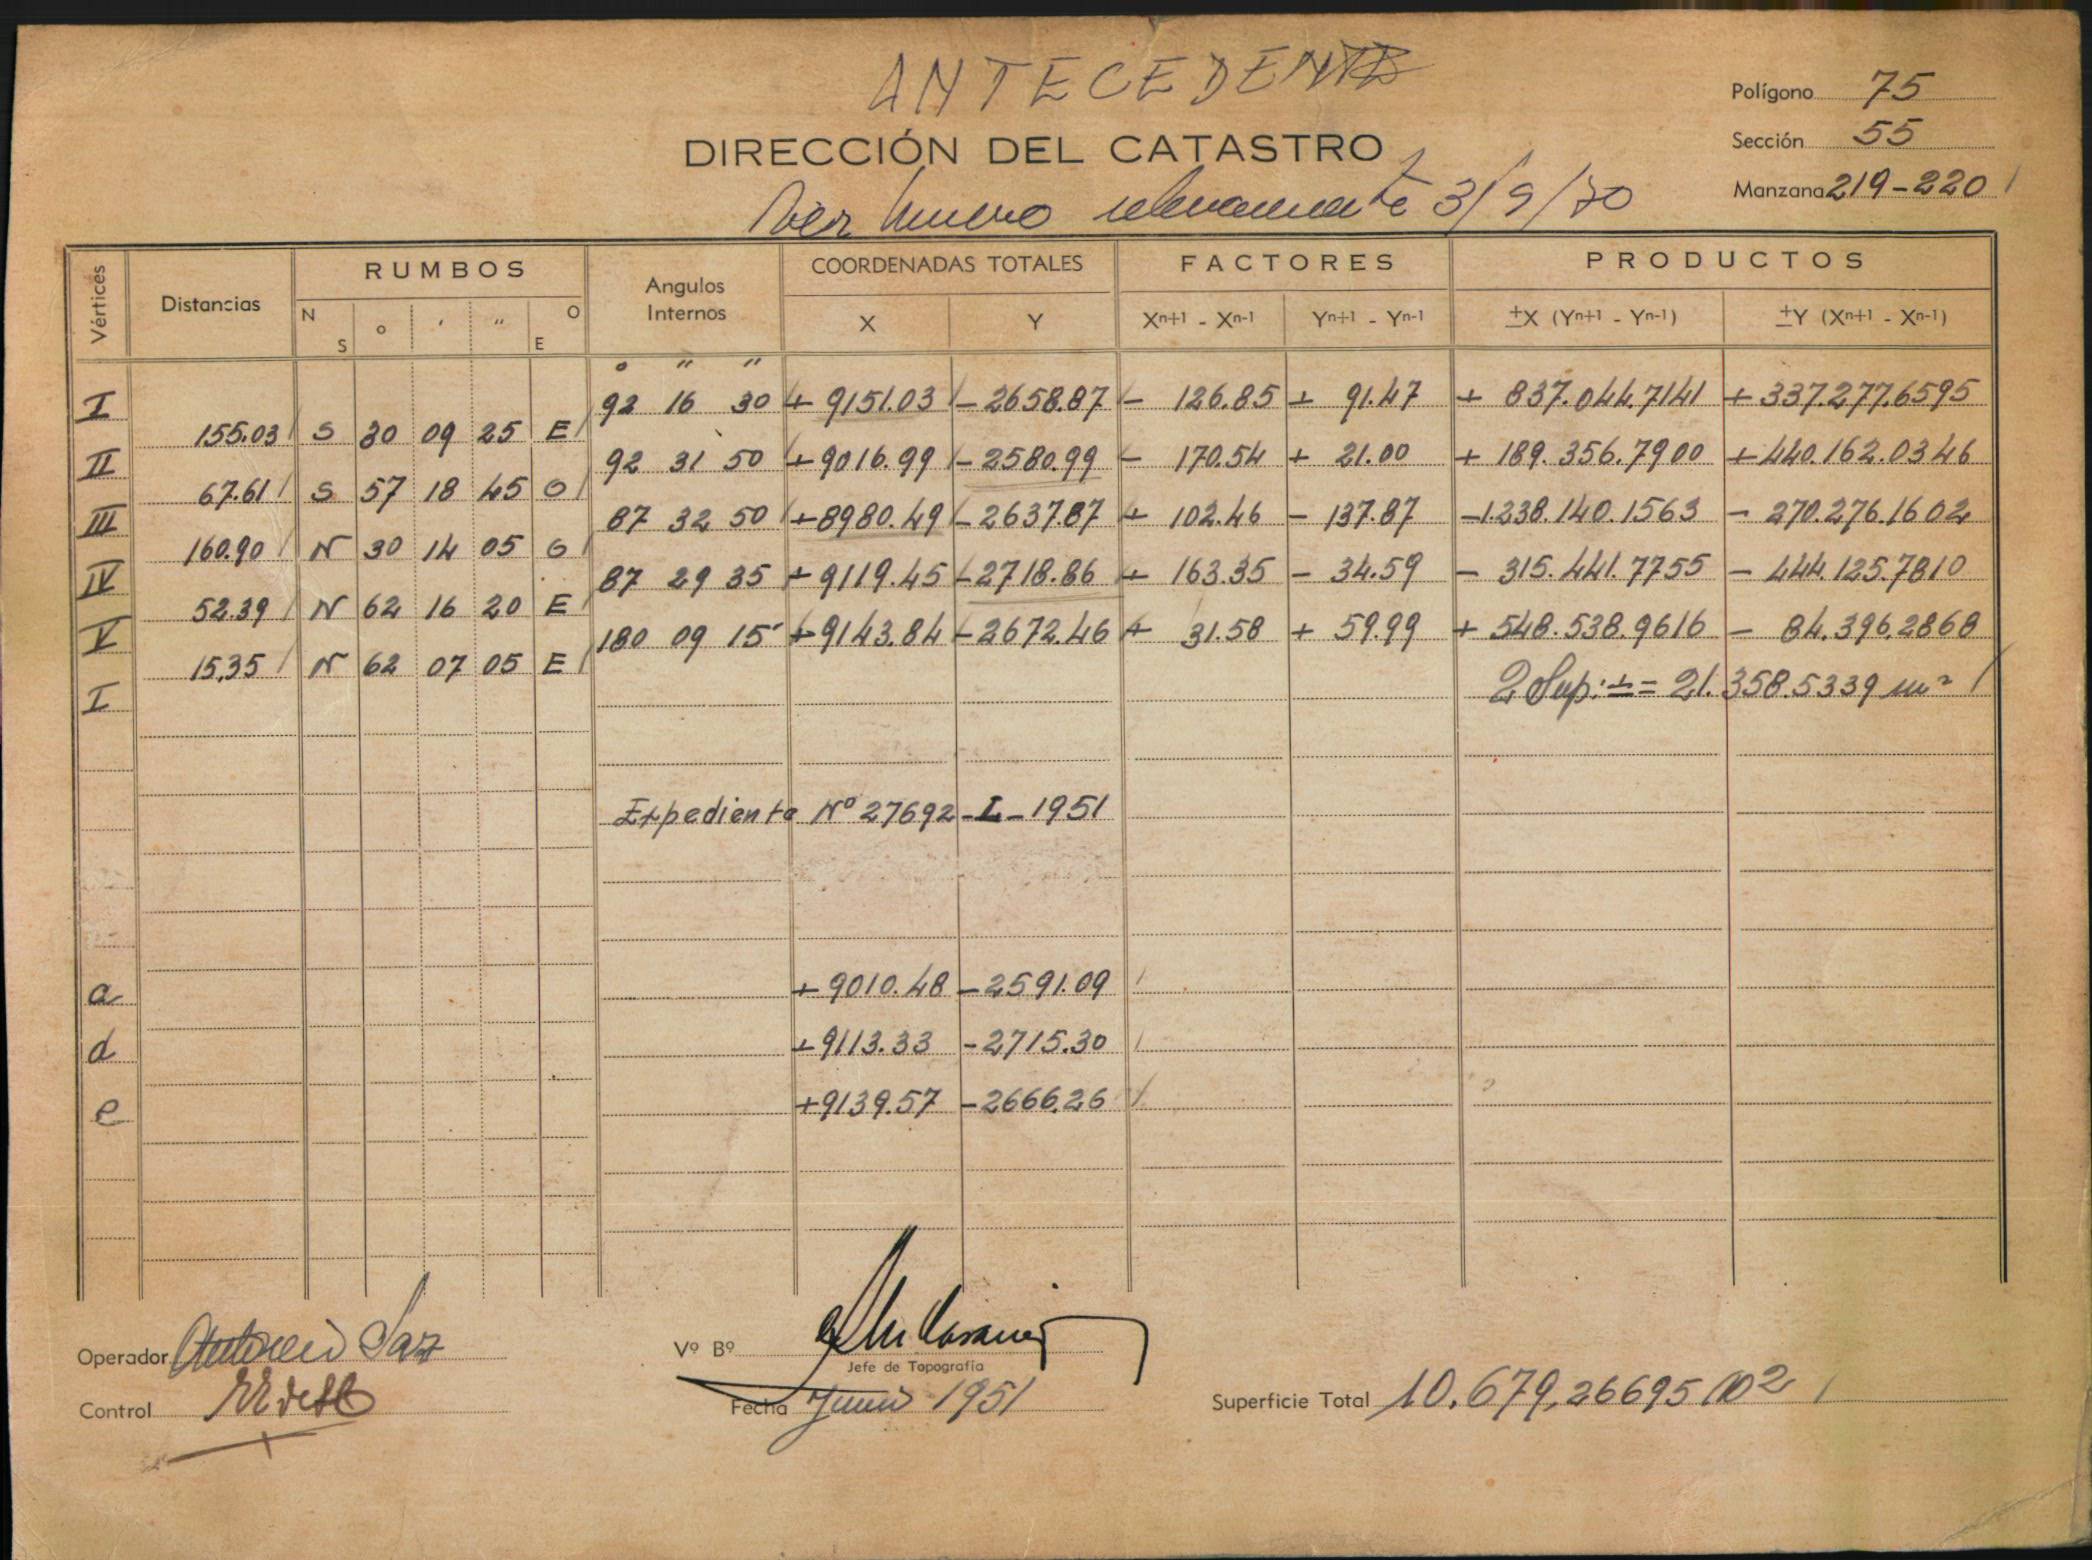 ANTECEDENTE
Polígono 75
DIRECCIÓN DEL CATASTRO
Sección 55
Ver nuevo relevamiento 3/9/70
Manzana 219-220
Vértices Distancias RUMBOS Angulos Internos COORDENADAS TOTALES FACTORES PRODUCTOS
N S ° ' " O E X Y Xn+1 - Xn-1 Yn+1 - Yn-1 ±X (Yn+1 - Yn-1) ±Y (Xn+1 - Xn-1)
° " "
I 92 16 30 + 9151.03 - 2658.87 - 126.85 + 91.47 + 837.044.7141 + 337.277.6595
155.03 S 30 09 25 E
II 92 31 50 + 9016.99 - 2580.99 - 170.54 + 21.00 + 189.356.7900 + 440.162.0346
67.61 S 57 18 45 O
III 87 32 50 + 8980.49 - 2637.87 + 102.46 - 137.87 -1238.140.1563 - 270.276.1602
160.90 N 30 14 05 O
IV 87 29 35 + 9119.45 - 2718.86 + 163.35 - 34.59 - 315.441.7755 - 444.125.7810
52.39 N 62 16 20 E
V 180 09 15 + 9143.84 - 2672.46 + 31.58 + 59.99 + 548.538.9616 - 84.396.2868
15,35 N 62 07 05 E
I 2 Sup: ± = 21.358.5339 m²
Expediente Nº 27692-I-1951
a + 9010.48 - 2591.09
d + 9113.33 - 2715.30
e + 9139.57 - 2666.26
Operador Antonio Saz
Vº Bº
Jefe de Topografía
Control
Fecha Junio 1951
Superficie Total 10.679,26695 m2